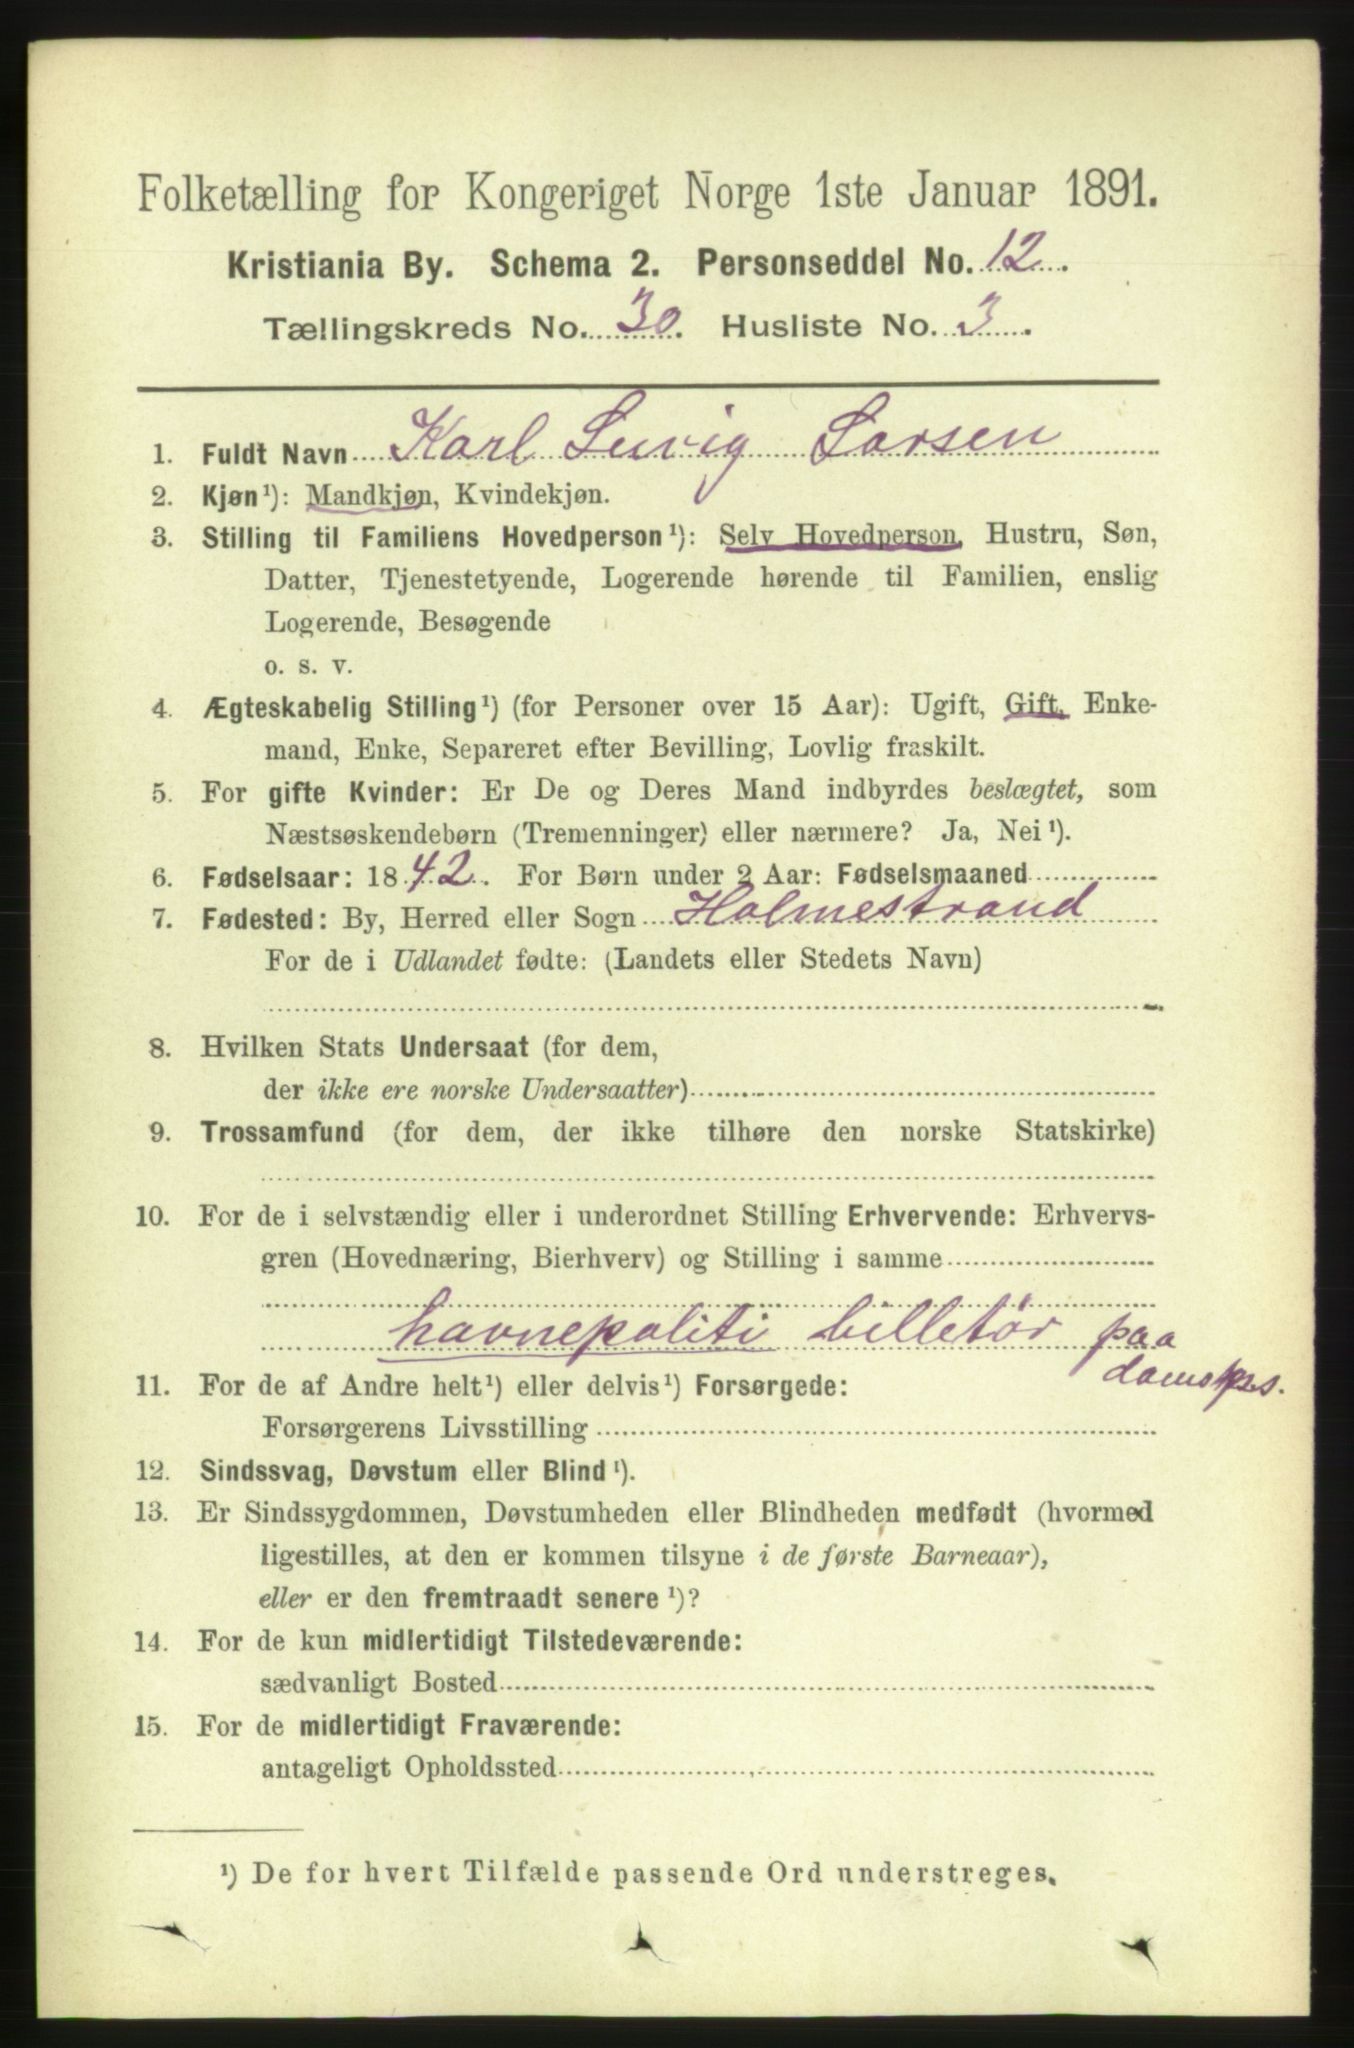 Folketælling for Kongeriget Norge 1ste Januar 1891.
Kristiania By. Schema 2. Personseddel No. 12.
Tællingskreds No. 30. Husliste No. 3.
1. Fuldt Navn Karl Luvig Larsen
2. Kjøn¹): Mandkjøn, Kvindekjøn.
3. Stilling til Familiens Hovedperson¹): Selv Hovedperson, Hustru, Søn,
Datter, Tjenestetyende, Logerende hørende til Familien, enslig
Logerende, Besøgende
o. s. v.
4. Ægteskabelig Stilling¹) (for Personer over 15 Aar): Ugift, Gift, Enke-
mand, Enke, Separeret efter Bevilling, Lovlig fraskilt.
5. For gifte Kvinder: Er De og Deres Mand indbyrdes beslægtet, som
Næstsøskendebørn (Tremenninger) eller nærmere? Ja, Nei¹).
6. Fødselsaar: 1842. For Børn under 2 Aar: Fødselsmaaned
7. Fødested: By, Herred eller Sogn Holmestrand
For de i Udlandet fødte: (Landets eller Stedets Navn)
8. Hvilken Stats Undersaat (for dem,
der ikke ere norske Undersaatter)
9. Trossamfund (for dem, der ikke tilhøre den norske Statskirke)
10. For de i selvstændig eller i underordnet Stilling Erhvervende: Erhvervs-
gren (Hovednæring, Bierhverv) og Stilling i samme
havnepoliti billetør paa
damskps.
11. For de af Andre helt¹) eller delvis¹) Forsørgede:
Forsørgerens Livsstilling
12. Sindssvag, Døvstum eller Blind¹).
13. Er Sindssygdommen, Døvstumheden eller Blindheden medfødt (hvormed
ligestilles, at den er kommen tilsyne i de første Barneaar),
eller er den fremtraadt senere¹)?
14. For de kun midlertidigt Tilstedeværende:
sædvanligt Bosted
15. For de midlertidigt Fraværende:
antageligt Opholdssted
¹) De for hvert Tilfælde passende Ord understreges.